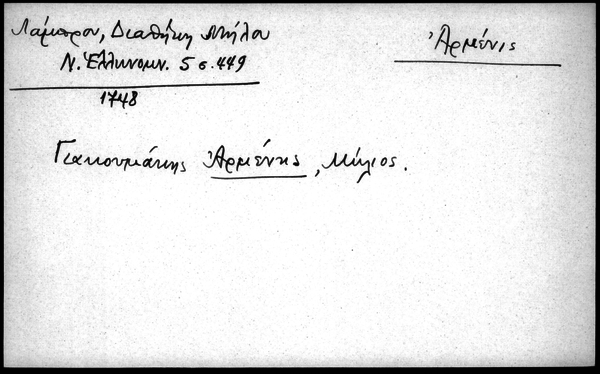 Λάμπρου, Διαθήκη Μήλου
Ν. Ἑλληνομν. 5 σ. 449
1748
Ἀρμένις
Γιακουμάκης Ἀρμένης, Μήλιος.